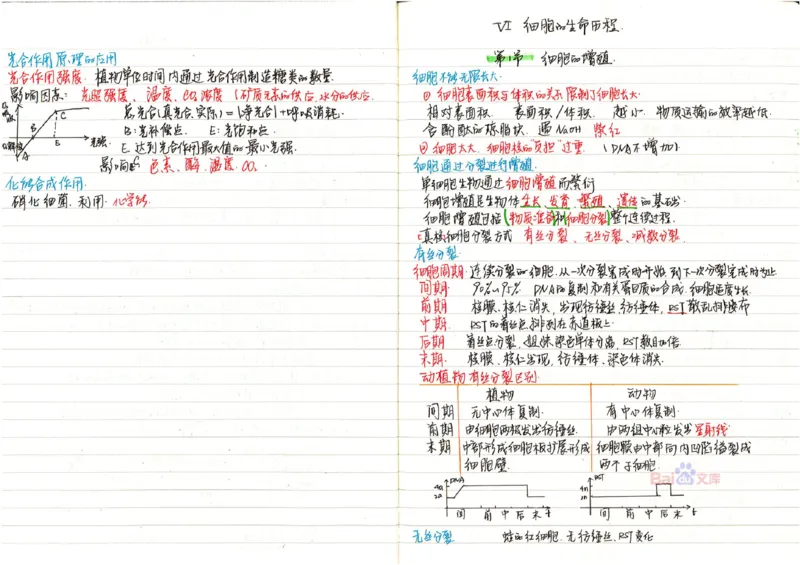 光合作用原理的应用
光合作用强度: 植物单位时间内通过光合作用制造糖类的数量.
影响因素: 光照强度、温度、CO₂浓度 (矿质元素的供应、水分的供应.
总光合(真光合、实际) = (净光合) + 呼吸消耗.
B: 光补偿点. E: 光饱和点.
E 达到光合作用最大值的最小光强.
影响E 色素、酶、温度、CO₂.
A B C E 光强
化能合成作用.
硝化细菌 利用 化学能.
VI 细胞的生命历程.
第1节 细胞的增殖.
细胞不能无限长大.
① 细胞表面积与体积的关系限制了细胞长大.
相对表面积. 表面积/体积. 越小 物质运输的效率越低.
含酚酞的琼脂块 遇NaOH 紫红
② 细胞太大 细胞核的"负担"过重. (DNA不增加).
细胞通过分裂进行增殖.
单细胞生物通过细胞增殖而繁衍
细胞增殖是生物体生长、发育、繁殖、遗传的基础.
细胞增殖包括(物质准备和细胞分裂)整个连续过程.
真核细胞分裂方式 有丝分裂、无丝分裂、减数分裂.
有丝分裂.
细胞周期: 连续分裂的细胞. 从一次分裂完成时开始 到下一次分裂完成时为止
间期 90%~95% DNA的复制和有关蛋白质的合成. 细胞适度生长.
前期 核膜、核仁消失, 发现纺锤丝纺锤体, RST散乱排布
中期. RST的着丝点排列在赤道板上.
后期 着丝点分裂, 姐妹染色单体分离, RST数目加倍
末期. 核膜、核仁发现, 纺锤体、染色体消失.
动植物有丝分裂区别.
植物 动物
间期 无中心体复制. 有中心体复制.
前期 由细胞两极发出纺锤丝. 由两组中心粒发出星射线.
末期 中部形成细胞板扩展形成 细胞膜由中部向内凹陷缢裂成
细胞壁. 两个子细胞.
DNA 4n 2n 间 前 中 后 末 t
RST 4n 2n 间 前 中 后 末 t
Bai du 文库
无丝分裂 蛙的红细胞. 无纺锤丝、RST变化